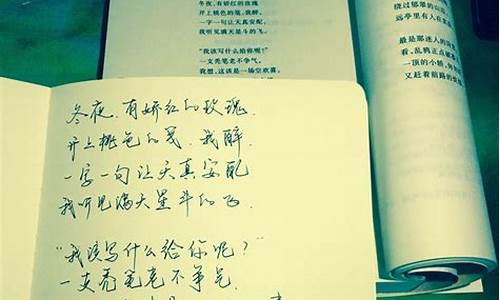 冬夜，有娇红的玫瑰
开上桃色的笺，我醉，
一字一句让天真安配，
我听见满天星斗的飞。
“我该写什么给你呢？”
一支秃笔老不争气。
我想，这该是一场空欢喜。
绕过郁翠的山
远亭里有人在
最是那迷人的
看，乱鸦正点破
一顶的小轿，
又赶着前路的
冬夜、有娇红的玫瑰、
开上桃色的笺、我醉、
一字一句让天真安配
我听见满天星斗的飞、
“我该写什么给你呢？”
一支秃笔老不争气、